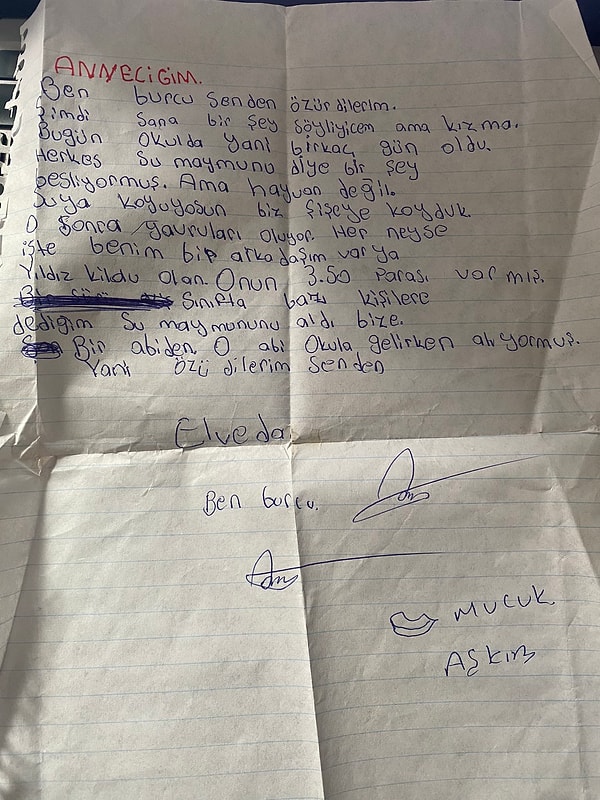 ANNECİGİM.
Ben burcu senden özür dilerim.
Şimdi sana bir şey söyliyicem ama kızma.
Bugün okulda yani birkaç gün oldu.
Herkes su maymunu diye bir şey
besliyormuş. Ama hayvan değil.
Suya koyuyosun biz şişeye koyduk.
O sonra yavruları oluyor. Her neyse
işte benim bir arkadaşım var ya
Yıldız kildu olan. Onun 3.50 parası varmış.
Sınıfta bazı kişilere
dediğim su maymununu aldı bize.
Bir abiden. O abi okula gelirken alıyormuş.
Yani özü dilerim senden
Elveda
Ben burcu.
MUCUK
AŞKIM